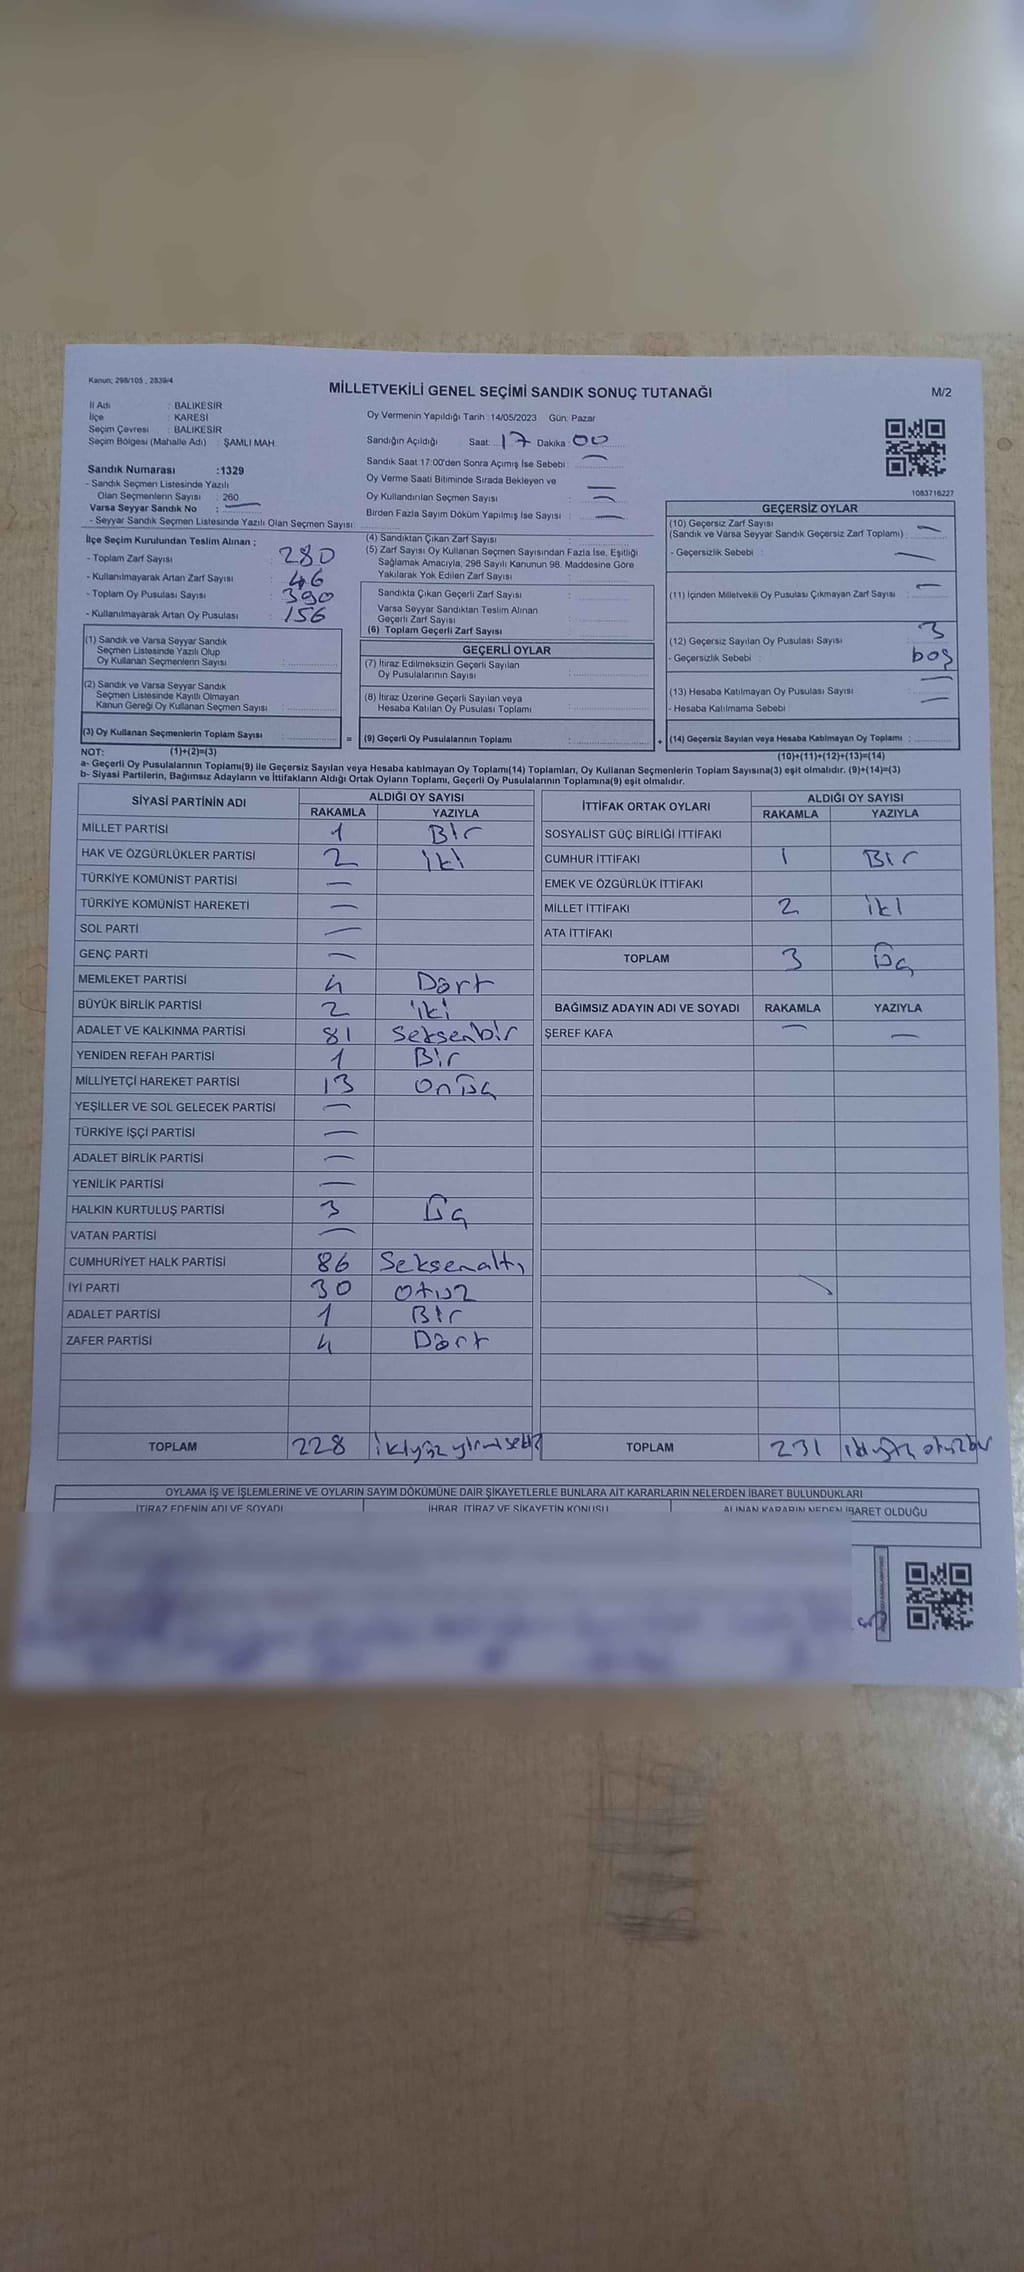 Kanun; 298/105 , 2839/4
MİLLETVEKİLİ GENEL SEÇİMİ SANDIK SONUÇ TUTANAĞI
M/2
İl Adı : BALIKESİR
İlçe : KARESİ
Seçim Çevresi : BALIKESİR
Seçim Bölgesi (Mahalle Adı) : ŞAMLI MAH.
Oy Vermenin Yapıldığı Tarih :14/05/2023 Gün: Pazar
Sandığın Açıldığı Saat: 17 Dakika : 00
Sandık Saat 17:00'den Sonra Açılmış İse Sebebi : —
Oy Verme Saati Bitiminde Sırada Bekleyen ve
Oy Kullandırılan Seçmen Sayısı : —
Birden Fazla Sayım Döküm Yapılmış İse Sayısı : —
1083716227
Sandık Numarası :1329
- Sandık Seçmen Listesinde Yazılı
Olan Seçmenlerin Sayısı : 260
Varsa Seyyar Sandık No : —
- Seyyar Sandık Seçmen Listesinde Yazılı Olan Seçmen Sayısı:
İlçe Seçim Kurulundan Teslim Alınan ;
- Toplam Zarf Sayısı : 280
- Kullanılmayarak Artan Zarf Sayısı : 46
- Toplam Oy Pusulası Sayısı : 390
- Kullanılmayarak Artan Oy Pusulası : 156
(1) Sandık ve Varsa Seyyar Sandık
Seçmen Listesinde Yazılı Olup
Oy Kullanan Seçmenlerin Sayısı :
(2) Sandık ve Varsa Seyyar Sandık
Seçmen Listesinde Kayıtlı Olmayan
Kanun Gereği Oy Kullanan Seçmen Sayısı :
(3) Oy Kullanan Seçmenlerin Toplam Sayısı :
(4) Sandıktan Çıkan Zarf Sayısı :
(5) Zarf Sayısı Oy Kullanan Seçmen Sayısından Fazla İse, Eşitliği
Sağlamak Amacıyla, 298 Sayılı Kanunun 98. Maddesine Göre
Yakılarak Yok Edilen Zarf Sayısı :
Sandıkta Çıkan Geçerli Zarf Sayısı :
Varsa Seyyar Sandıktan Teslim Alınan
Geçerli Zarf Sayısı :
(6) Toplam Geçerli Zarf Sayısı :
GEÇERLİ OYLAR
(7) İtiraz Edilmeksizin Geçerli Sayılan
Oy Pusulalarının Sayısı :
(8) İtiraz Üzerine Geçerli Sayılan veya
Hesaba Katılan Oy Pusulası Toplamı :
= (9) Geçerli Oy Pusulalarının Toplamı : +
GEÇERSİZ OYLAR
(10) Geçersiz Zarf Sayısı
(Sandık ve Varsa Seyyar Sandık Geçersiz Zarf Toplamı) : —
- Geçersizlik Sebebi : —
(11) İçinden Milletvekili Oy Pusulası Çıkmayan Zarf Sayısı : —
(12) Geçersiz Sayılan Oy Pusulası Sayısı : 3
- Geçersizlik Sebebi : boş
(13) Hesaba Katılmayan Oy Pusulası Sayısı : —
- Hesaba Katılmama Sebebi : —
(14) Geçersiz Sayılan veya Hesaba Katılmayan Oy Toplamı :
NOT: (1)+(2)=(3) (10)+(11)+(12)+(13)=(14)
a- Geçerli Oy Pusulalarının Toplamı(9) ile Geçersiz Sayılan veya Hesaba katılmayan Oy Toplamı(14) Toplamları, Oy Kullanan Seçmenlerin Toplam Sayısına(3) eşit olmalıdır. (9)+(14)=(3)
b- Siyasi Partilerin, Bağımsız Adayların ve İttifakların Aldığı Ortak Oyların Toplamı, Geçerli Oy Pusulalarının Toplamına(9) eşit olmalıdır.
SİYASİ PARTİNİN ADI ALDIĞI OY SAYISI
RAKAMLA YAZIYLA
MİLLET PARTİSİ 1 Bir
HAK VE ÖZGÜRLÜKLER PARTİSİ 2 iki
TÜRKİYE KOMÜNİST PARTİSİ —
TÜRKİYE KOMÜNİST HAREKETİ —
SOL PARTİ —
GENÇ PARTİ —
MEMLEKET PARTİSİ 4 Dört
BÜYÜK BİRLİK PARTİSİ 2 iki
ADALET VE KALKINMA PARTİSİ 81 Seksenbir
YENİDEN REFAH PARTİSİ 1 Bir
MİLLİYETÇİ HAREKET PARTİSİ 13 onüç
YEŞİLLER VE SOL GELECEK PARTİSİ —
TÜRKİYE İŞÇİ PARTİSİ —
ADALET BİRLİK PARTİSİ —
YENİLİK PARTİSİ —
HALKIN KURTULUŞ PARTİSİ 3 üç
VATAN PARTİSİ —
CUMHURİYET HALK PARTİSİ 86 Seksenaltı
İYİ PARTİ 30 otuz
ADALET PARTİSİ 1 Bir
ZAFER PARTİSİ 4 Dört
TOPLAM 228 ikiyüzyirmisekiz
İTTİFAK ORTAK OYLARI ALDIĞI OY SAYISI
RAKAMLA YAZIYLA
SOSYALİST GÜÇ BİRLİĞİ İTTİFAKI
CUMHUR İTTİFAKI 1 Bir
EMEK VE ÖZGÜRLÜK İTTİFAKI
MİLLET İTTİFAKI 2 iki
ATA İTTİFAKI
TOPLAM 3 üç
BAĞIMSIZ ADAYIN ADI VE SOYADI RAKAMLA YAZIYLA
ŞEREF KAFA — —
TOPLAM 231 ikiyüz otuzbir
OYLAMA İŞ VE İŞLEMLERİNE VE OYLARIN SAYIM DÖKÜMÜNE DAİR ŞİKAYETLERLE BUNLARA AİT KARARLARIN NELERDEN İBARET BULUNDUKLARI
İTİRAZ EDENİN ADI VE SOYADI İHBAR, İTİRAZ VE ŞİKAYETİN KONUSU ALINAN KARARIN NEDEN İBARET OLDUĞU